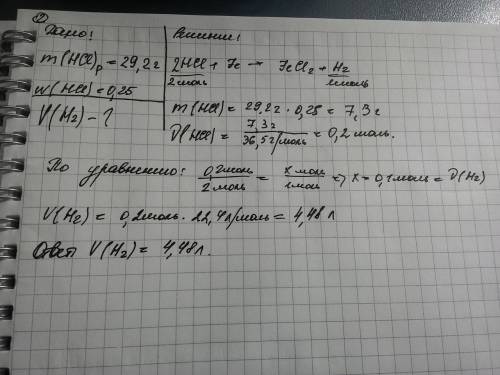 ②
Дано:
m(HCl)р = 29,2г
w(HCl) = 0,25
V(H2) - ?
Решение:
2HCl + Fe → FeCl2 + H2
2моль 1моль
m(HCl) = 29,2г · 0,25 = 7,3г
ν(HCl) = 7,3г / 36,5г/моль = 0,2 моль.
По уравнению: 0,2моль / 2моль = x моль / 1моль => x = 0,1моль = ν(H2)
V(H2) = 0,2моль · 22,4л/моль = 4,48л
Ответ V(H2) = 4,48л.